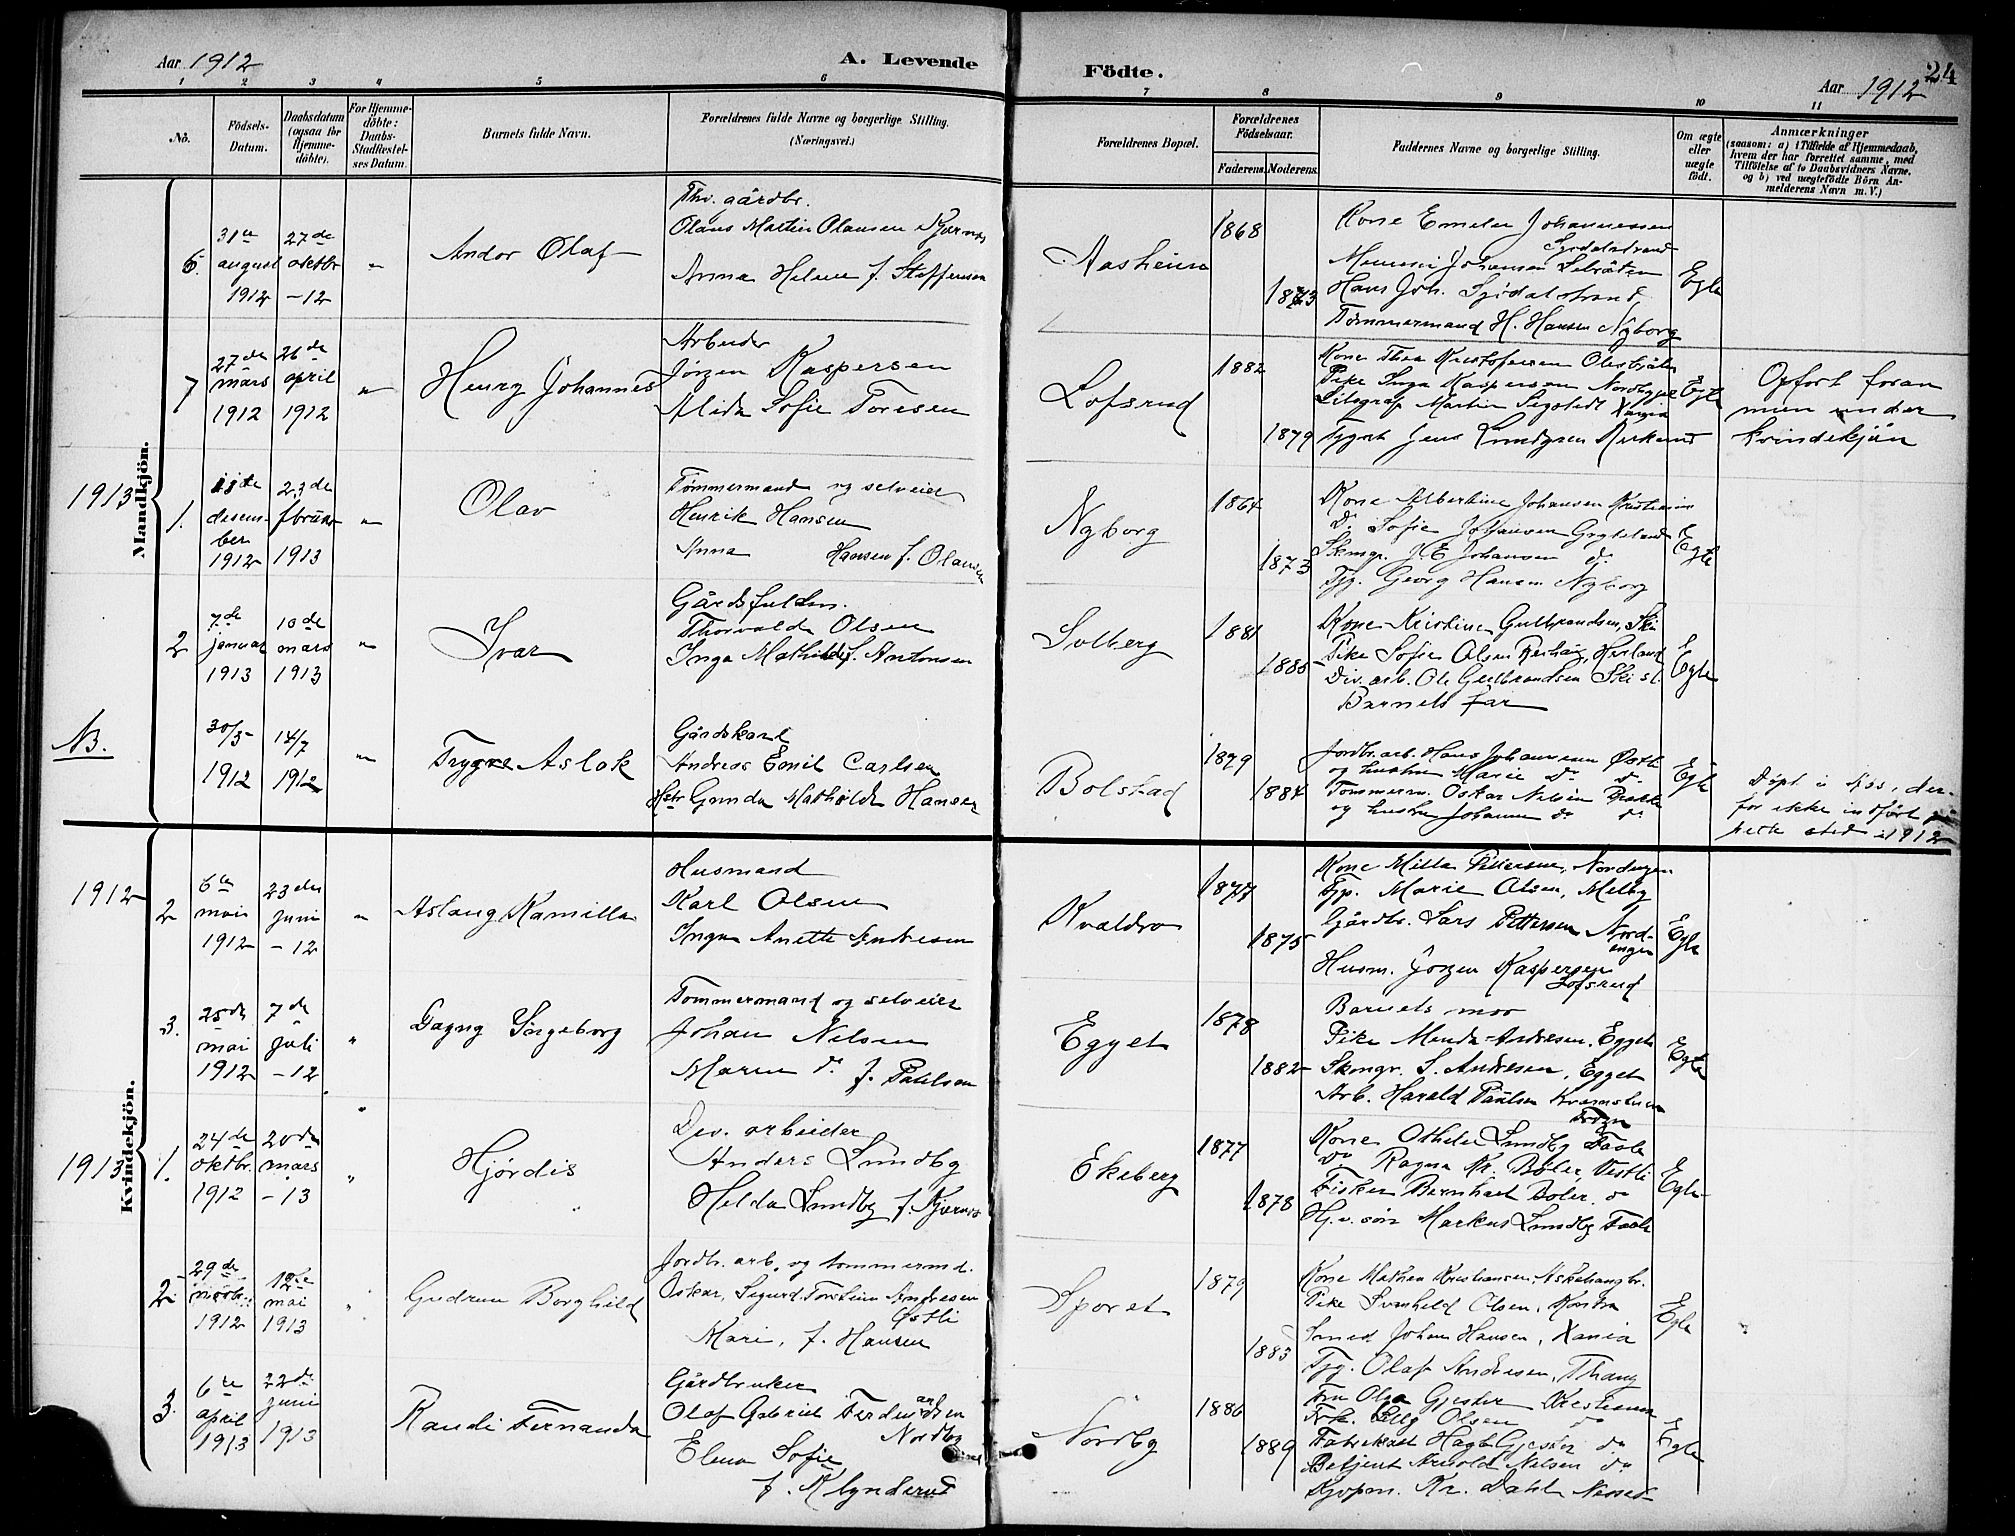 Aar 1912
A. Levende
Födte.
Aar 1912
24
1 2 3 4 5 6 7 8 9 10 11
Nö.
Födsels-Datum.
Daabsdatum (ogsaa for Hjemme-döbte).
For Hjemme-döbte: Daabs-Stadfæstel-ses Datum.
Barnets fulde Navn.
Forældrenes fulde Navne og borgerlige Stilling. (Næringsvei.)
Forældrenes Bopæl.
Forældrenes Födselsaar.
Faderens. Moderens.
Faddernes Navne og borgerlige Stilling.
Om ægte eller uægte födt.
Anmærkninger
(saasom: a) i Tilfælde af Hjemmedaab, hvem der har forrettet samme, med Tilföielse af to Daabsvidners Navne, og b) ved uægtefödte Börn An-melderens Navn m. V.)
Mandkjön.
6. 31te august 1912
27de oktbr -12
"
Andor Olaf
Thv. gårdbr.
Olaus Martin Olausen Kjærnes
Anna Helene f. Steffensen
Aasheim
1868
1873
Kone Emelie Johannessen
Sjödalstrand
Johansen
Hans Joh. Sjödalstrand,
Tømmermand H. Hansen Nyborg
Egte
7 27de mars 1912
26de april 1912
"
Henry Johannes
Arbeider
Jörgen Kaspersen
Alida Sofie Toresen
Lofsrud
1882
1879
Kone Thea Kristofersen
Pike Inga Kaspersen Nordbygget
Litograf Martin Segstedt Xania
Jens Lundgren
Egte
Opfort foran
men under
kvindekjön
1913
1. 18de desember 1912
23de februar 1913
"
Olav
Tömmermand og selveier
Henrik Hansen
Anna Hansen f. Olausen
Nyborg
1864
1873
Kone Albertine Johansen Kristiania
D. Sofie Johansen
Skomgr. J E Johansen do
Tjg. Georg Hansen Nyborg
Egte
2 7de januar 1913
10de mars 1913
"
Ivar
Gårdsfuldm.
Thorvald Olsen
Inga Mathilde f. Antonsen
Solberg
1881
1885
Kone Kristine Gulbrandsen, Ski
Pike Sofie Olsen
Div. arb. Ole Gulbrandsen Ski st.
Barnets far
Egte
NB.
30/5 1912
14/7 1912
"
Trygve Aslak
Gårdskarl
Andreas Emil Carlsen
Hstr Gunda Mathilde Hansen
Bolstad
1879
1884
Jordbr. arb. Hans Johannesen
og hustru Marie do do
Tömmerm. Oskar Nilsen
og hustru Johanne do do
Egte
Döpt i Ås, der-
for ikke indfört på
rette sted i 1912
Kvindekjön.
1912
2 6te mai 1912
23de juni -12
"
Aslaug Kamilla
Husmand
Karl Olsen
Inga Anette Andresen
Kvældro
1877
1875
Kone Milla Pettersen, Nordengen
Tjp. Marie Olsen, Melby
Gårdbr. Lars Pettersen Nord-
engen
Husm. Jörgen Kaspersen
Lofsrud
Egte
3. 25de mai 1912
7de juli -12
"
Dagny Ingeborg
Tömmermand og selveier
Johan Nelsen
Maren do f. Paulsen
Egget
1878
1882
Barnets mor
Pike Minda Andresen, Egget
Skomgr. S. Andresen, Egget
Arb. Harald Paulsen
Frogn
Egte
1913
1. 24de oktbr. 1912
20de mars -13
"
Hjördis
Div. arbeider
Anders Lundby
Helda Lundby f. Kjærnes
Ekeberg
1877
1878
Kone Othelie Lundby
Do Ragna Kr. Böler, Vestli
Fisker Bernhart Böler do
Hj.v. sön Markus Lundby
Egte
2 29de novbr. 1912
12te mai 1913
"
Gudrun Borghild
Jordbr. arb. og tommermd.
Oskar, Sigurd, Torstein Andresen
Østli
Mari, f. Hansen
Sporet
1879
1883
Kone Mathea Kristiansen Askehaugbr.
Pike Svanhild Olsen,
Smed Johan Hansen, Xania
Tjg. Olaf Andresen,
Egte
3. 6te april 1913
22de juni 1913
Randi Fernanda
Gårdbruker
Olaf Gabriel Ferdinandsen
Nordby
Elena Sofie
f. Klynderud
Nordby
1886
1889
Fru Olga Gjester Kristiania
Frk. Elly Olsen do
Fabrikant Hagb. Gjester do
Betjent Arnold Nilsen do
Kjöpm. Kr. Dahl
Egte